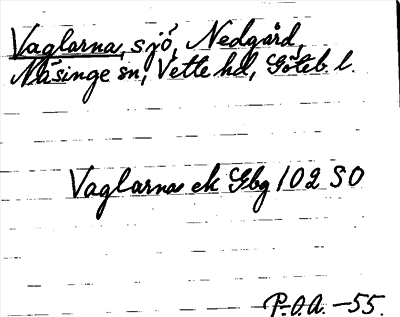 Vaglarna, sjö, Nedgård,
Näsinge sn, Vette hd, Göteb. l.
Vaglarna ek Gbg 102 SO
P.O.A. -55.